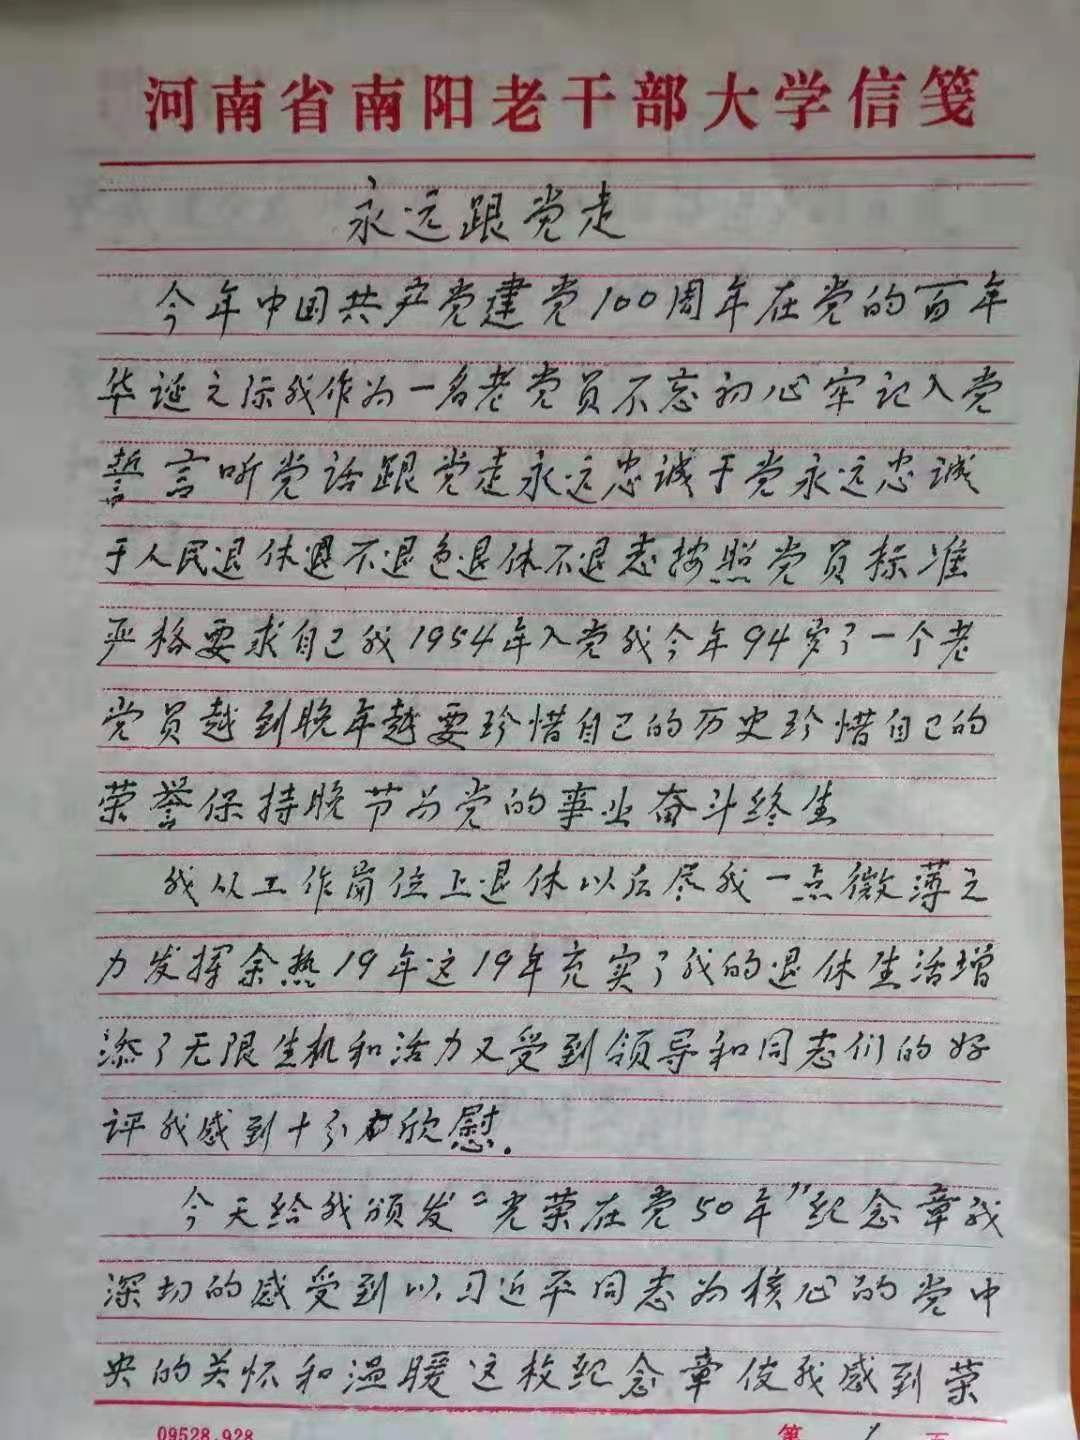 河南省南阳老干部大学信笺
永远跟党走
今年中国共产党建党100周年在党的百年
华诞之际我作为一名老党员不忘初心牢记入党
誓言听党话跟党走永远忠诚于党永远忠诚
于人民退休不退色退休不退志按照党员标准
严格要求自己我1954年入党我今年94岁了一个老
党员越到晚年越要珍惜自己的历史珍惜自己的
荣誉保持晚节为党的事业奋斗终生
我从工作岗位上退休以后尽我一点微薄之
力发挥余热19年这19年充实了我的退休生活增
添了无限生机和活力又受到领导和同志们的好
评我感到十分欣慰.
今天给我颁发“光荣在党50年”纪念章我
深切的感受到以习近平同志为核心的党中
央的关怀和温暖这枚纪念章使我感到荣
09528.928
第 1 页